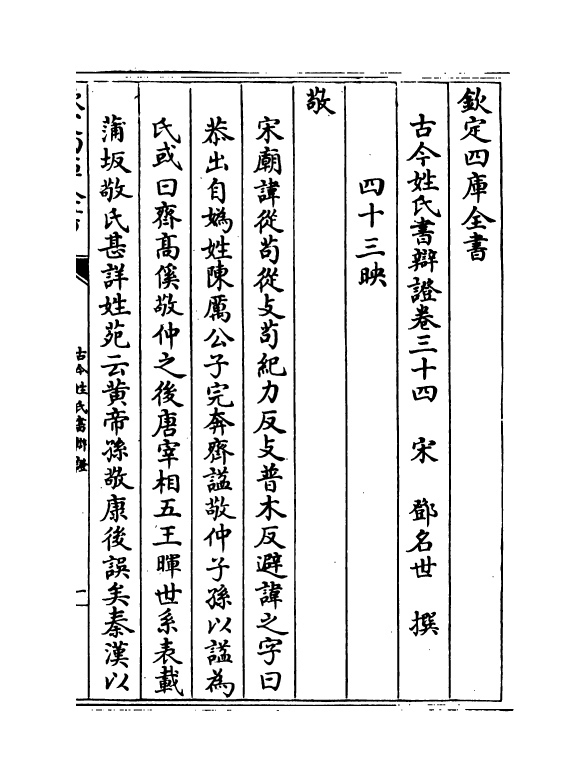 欽定四庫全書
古今姓氏書辯證卷三十四 宋 鄧名世 撰
四十三映
敬
宋廟諱從茍從攴茍紀力反攴普木反避諱之字曰
恭出自媯姓陳厲公子完奔齊諡敬仲子孫以諡為
氏或曰齊髙傒敬仲之後唐宰相五王暉世系表載
蒲坂敬氏甚詳姓苑云黄帝孫敬康後誤矣秦漢以
古今姓氏書辯證
一